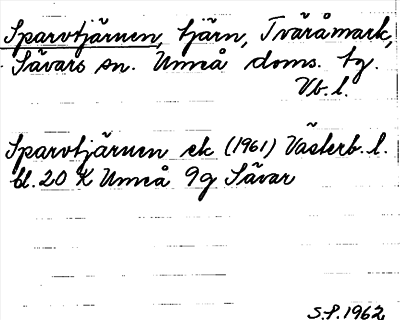 Sparvtjärnen, tjärn, Tväråmark,
Sävars sn. Umeå doms. tg.
Vb. l.
Sparvtjärnen ek (1961) Västerb. l.
bl. 20 K Umeå 9g Sävar
S.F. 1962